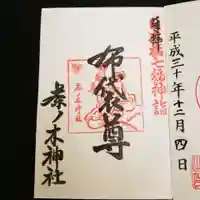 平成三十年十二月四日
七福神詣
布袋尊
茶ノ木神社